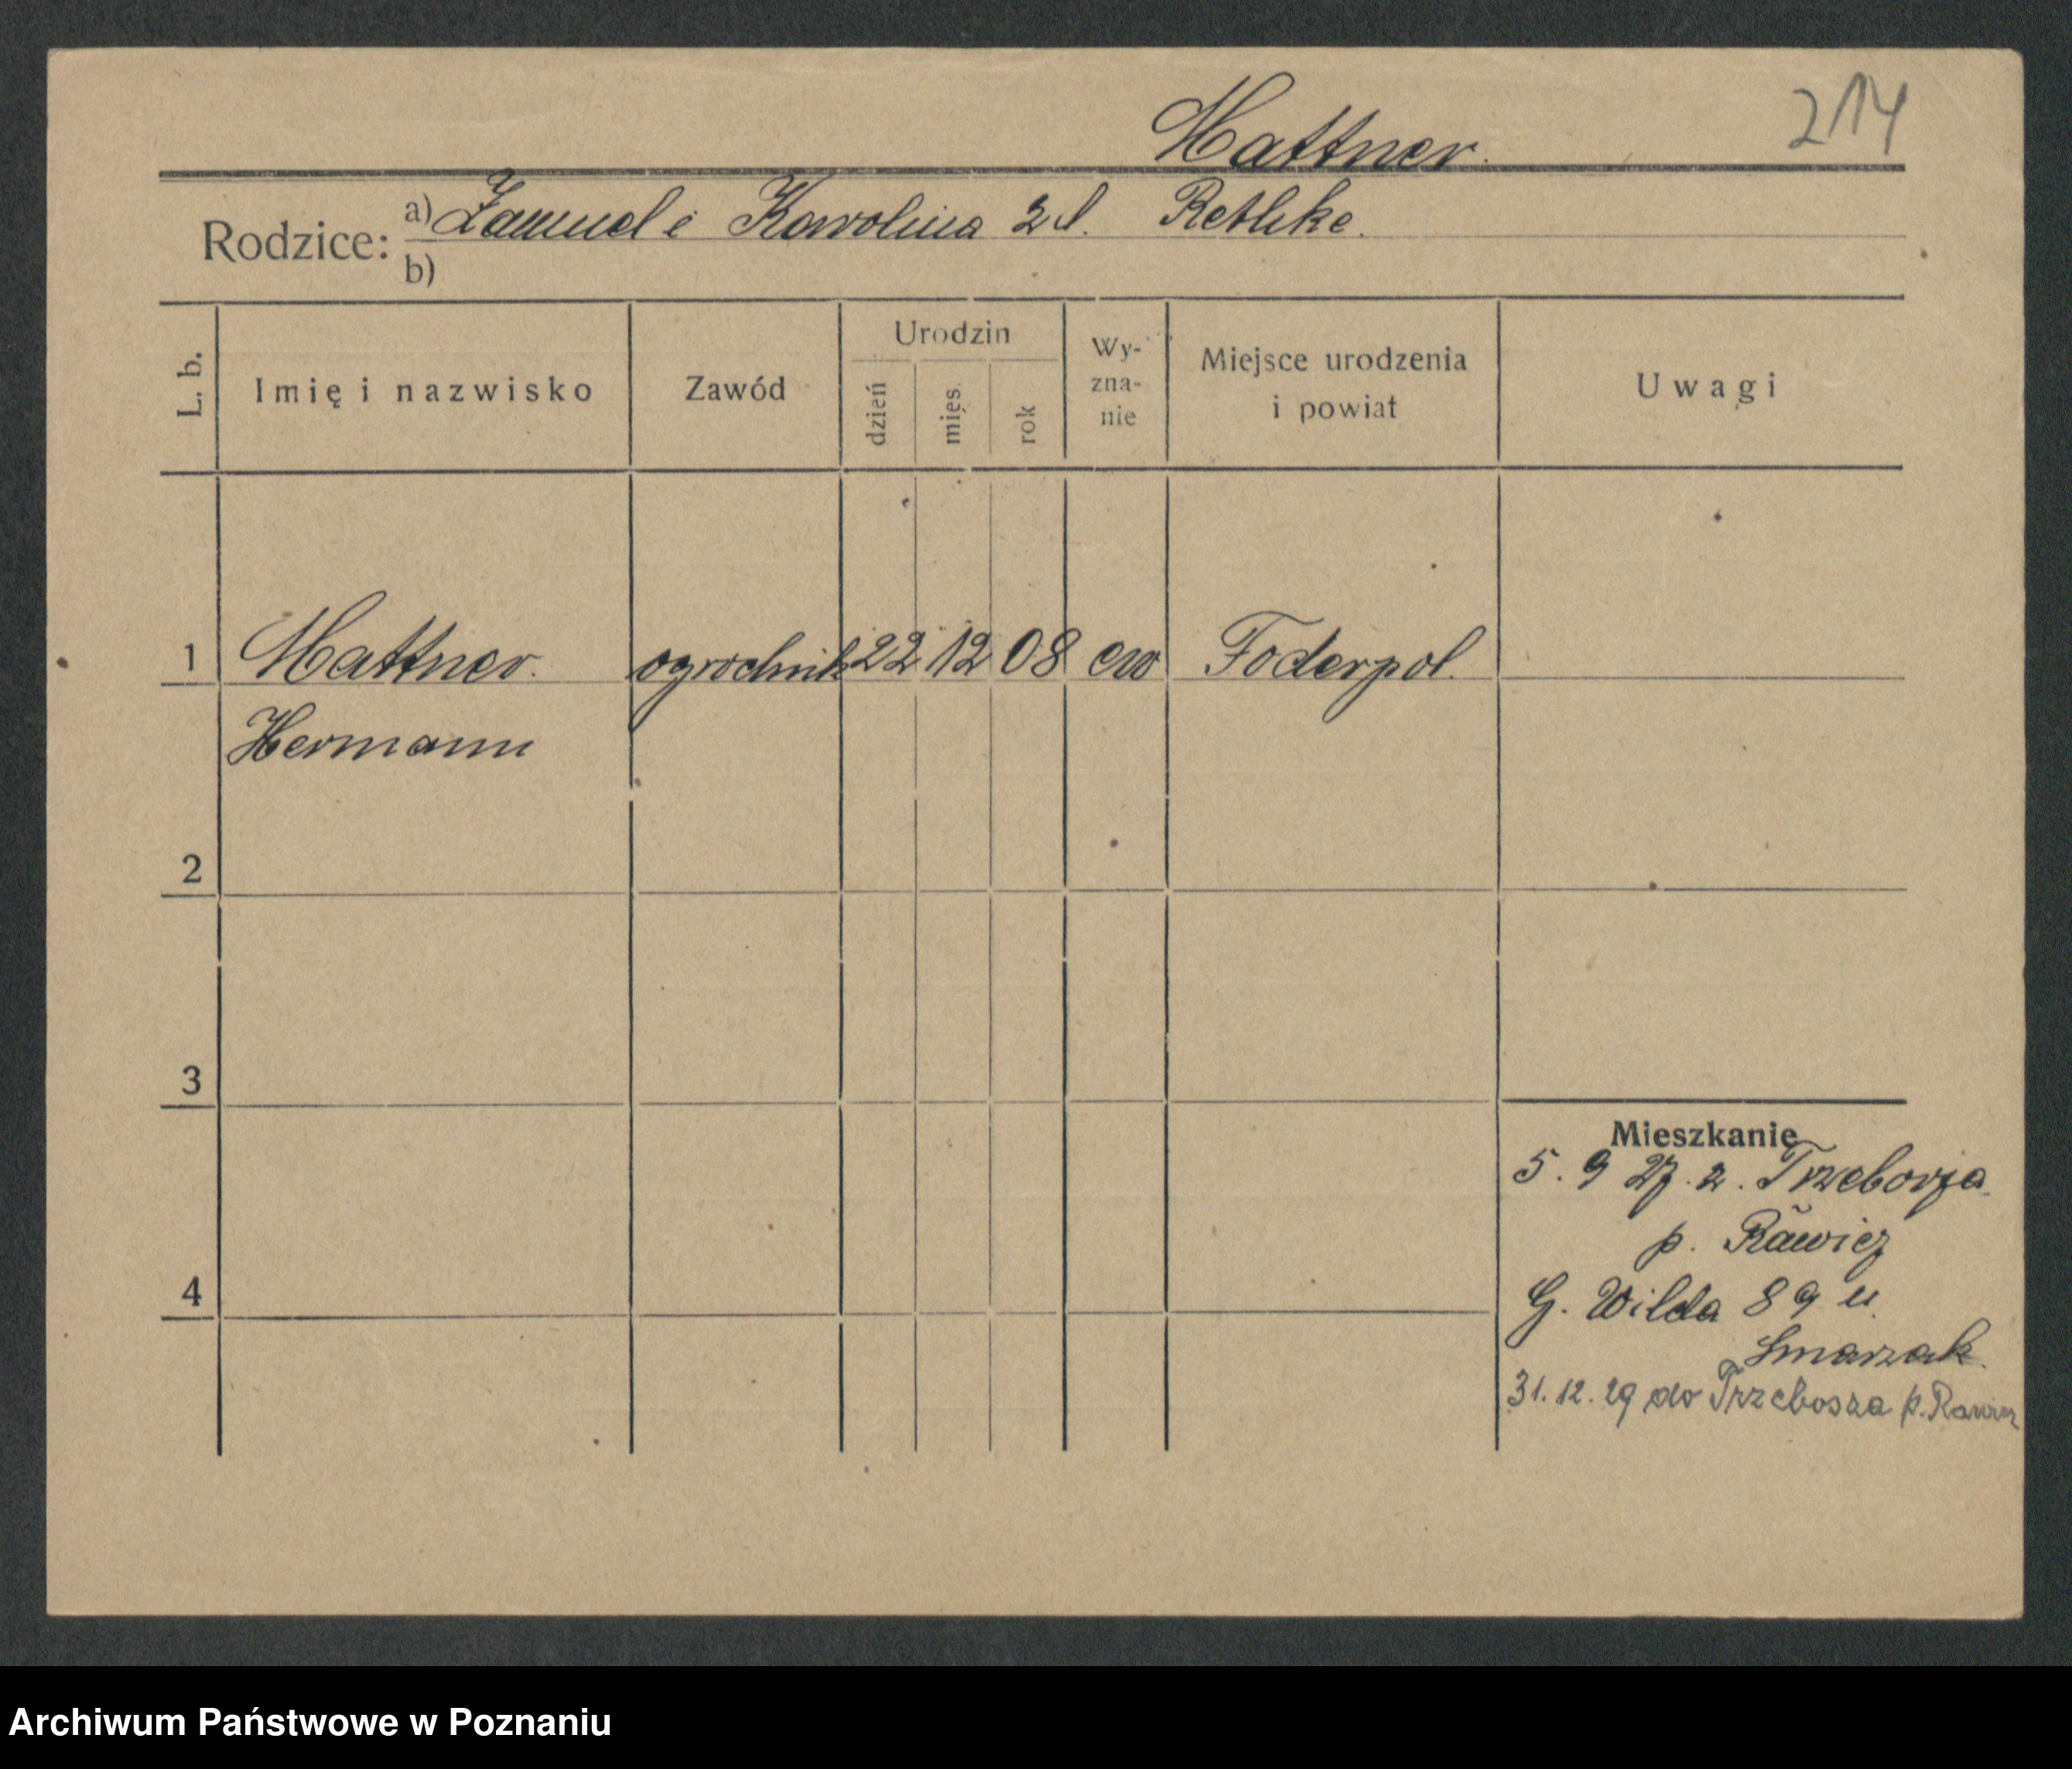 214
Mattner.
Rodzice: a) Zamuel i Karolina zd. Rethke.
b)
L. b. Imię i nazwisko Zawód Urodzin dzień mięs. rok Wy-zna-nie Miejsce urodzenia i powiat Uwagi
1 Mattner. ogrodnik 22 12 08 ew Foderpol.
Hermann
2
3
Mieszkanie
5. 9 27. z. Trzeborza
p. Rawicz
4
G. Wilda 89 u.
Smarzak.
31. 12. 29 do Trzebosza p. Rawicz
Archiwum Państwowe w Poznaniu